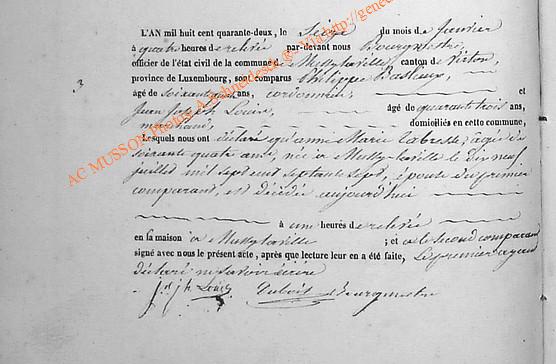 L'AN mil huit cent quarante-deux, le Seize du mois de Janvier
à quatre heures de relevée par-devant nous Bourgmestre,
officier de l'état civil de la commune de Mussy la ville, canton de Virton,
province de Luxembourg, sont comparus Philippe
3
âgé de soixante ans, cordonnier, et
Jean Joseph Louis, âgé de quarante trois ans,
marchand, domiciliés en cette commune,
Lesquels nous ont déclaré qu'anne Marie labresse, agée de
soixante quatre ans, née à Mussy la ville le dix neuf
juillet mil sept cent septante sept, épouse du premier
comparant, est décédée aujourd'hui
à une heures de relevée
en sa maison à Mussy la ville ; et a le second comparant
signé avec nous le présent acte, après que lecture leur en a été faite, le premier ayant
déclaré ne savoir écrire
j. jh. Louis Dubois Bourgmestre
AC MUSSON Photos A.Schnedesch @ -Via- http://gene